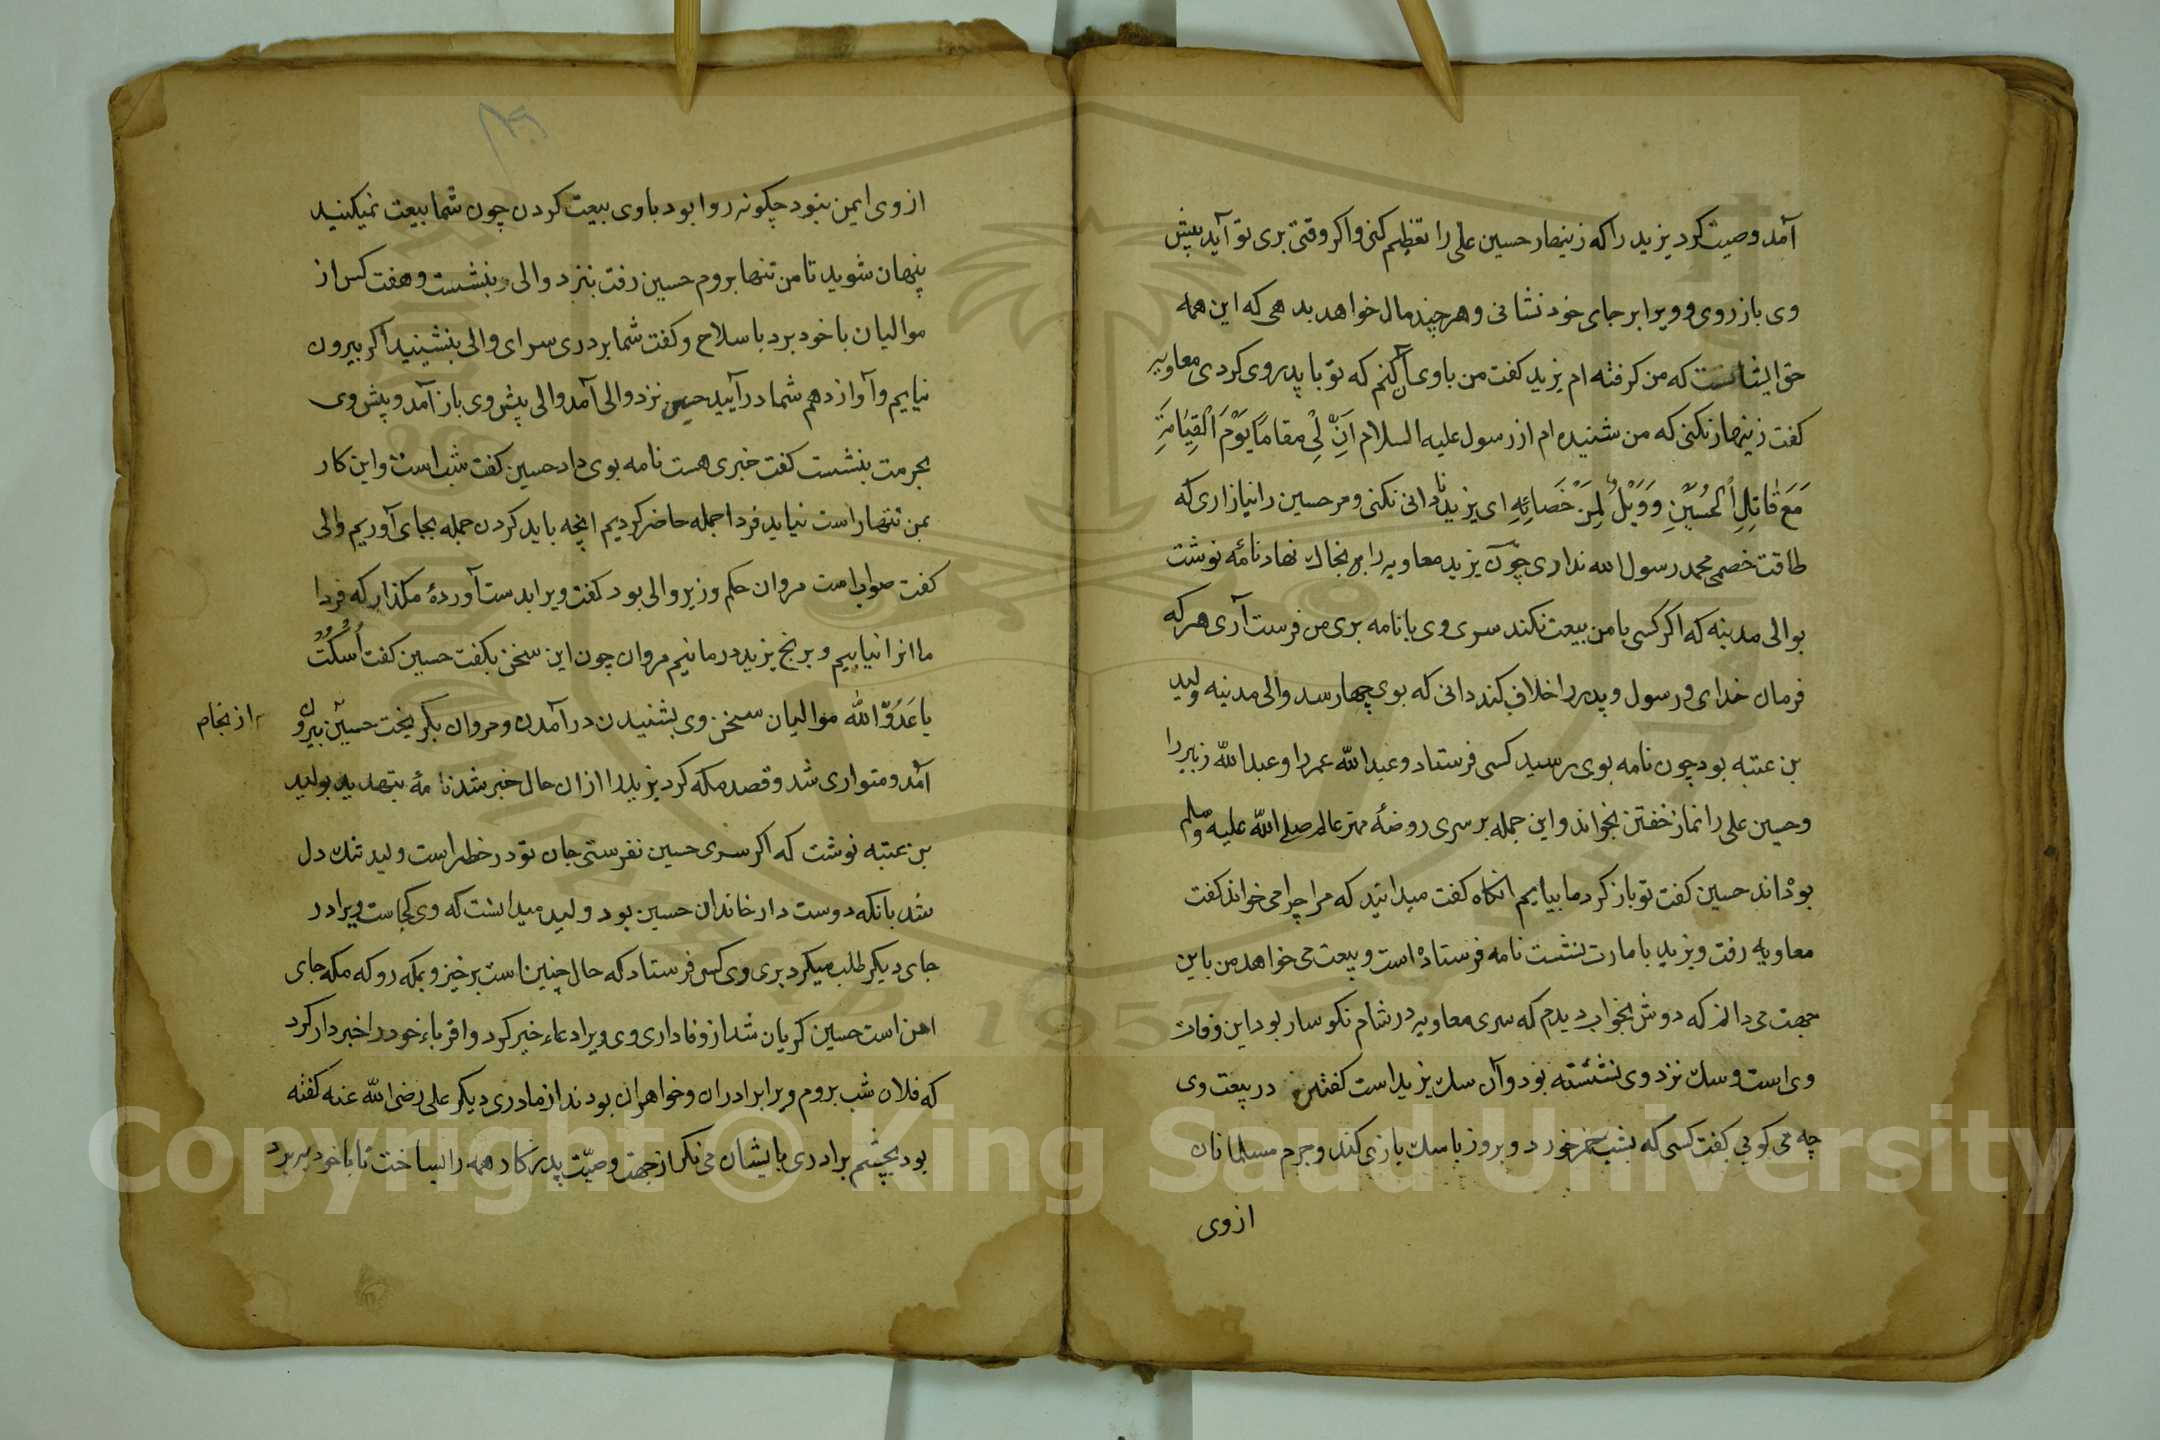 آمد وصیت کرد یزید را که زینهار حسین علی را تعظیم کنی و اکر وقتی بری تو آید پیش
وی باز روی و ویرا بر جای خود نشانی و هر چند مال خواهد بدهی که این همه
حق ایشانست که من کرفته ام یزید کفت من با وی آن کنم که تو با پدر وی کردی معاویه
کفت زینهار نکنی که من شنیده ام از رسول علیه السلام اِنَّ لِی مقاماً یَوْمَ الْقِیَامَةِ
مَعَ قَاتِلِ الْحُسَیْنِ وَ وَیْلٌ لِمَنْ خَصَائِهِ ای یزید نادانی نکنی و مر حسین را نیازاری که
طاقت خصمی محمد رسول الله نداری چون یزید معاویه را بخاک نهاد نامه نوشت
بوالی مدینه که اکر کسی با من بیعت نکند سری وی با نامه بری من فرست آری هر که
فرمان خدای و رسول و پدر را خلاف کند دانی که بوی چها رسد والی مدینه ولید
بن عتبه بود چون نامه بوی رسید کسی فرستاد و عبدالله عمر را و عبدالله زبیر را
و حسین علی را نماز خفتن بخواند و این جمله بر سری روضهٔ مهتر عالم صلی الله علیه وسلم
بودند حسین کفت تو باز کرد ما بیاییم انکاه کفت میدانید که مرا چرا می خواند کفت
معاویه رفت و یزید بامارت نشست نامه فرستاده است و بیعت می خواهد من باین
جهت می دانم که دوش بخواب دیدم که سری معاویه در شام نکوسار بود این وفات
وی است و سک نزد وی نشسته بود و آن سک یزید است کفتند در بیعت وی
چه می کویی کفت کسی که بشب خمر خورد و بروز با سک بازی کند و جرم مسلمانان
از وی
از وی ایمن نبود چکونه روا بود با وی بیعت کردن چون شما بیعت نمیکنید
پنهان شوید تا من تنها بروم حسین رفت بنزد والی و بنشست و هفت کس از
موالیان با خود برد با سلاح و کفت شما بر دری سرای والی بنشینید اکر بیرون
نیایم و آواز دهم شما در آیید حسین نزد والی آمد والی پیش وی باز آمد و پیش وی
بحرمت بنشست کفت خبری هست نامه بوی داد حسین کفت شب است و این کار
بمن تنها راست نیاید فردا جمله حاضر کردیم انچه باید کردن جمله بجای آوریم والی
کفت صوابست مروان حکم وزیر والی بود کفت ویرا بدست آوردهٔ مکذار که فردا
ما انرا نیابیم و برنج یزید درمانیم مروان چون این سخن بکفت حسین کفت اُسْکُتْ
یا عَدُوَّ الله موالیان سخن وی بشنیدن در آمدن و مروان بکریخت حسین بیرون
از نجام
آمد و متواری شد و قصد مکه کرد یزید را از ان حال خبر شد نامهٔ بتهدید بولید
بن عتبه نوشت که اکر سری حسین نفرستی جان تو در خطر است ولید تنک دل
شد بانکه دوست دار خاندان حسین بود ولید میدانست که وی کجاست ویرا در
جای دیکر طلب میکرد بری وی کس فرستاد که حال چنین است برخیز و بمکه رو که مکه جای
امن است حسین کریان شد از وفاداری وی ویرا دعاء خیر کرد و اقرباء خود را خبردار کرد
که فلان شب بروم ویرا برادران و خواهران بودند از مادری دیکر علی رضی الله عنه کفته
بود بچشم برادری بایشان می نکر از جهت وصیّت پدر کار همه را بساخت تا با خود ببرد
Copyright © King Saud University
1957